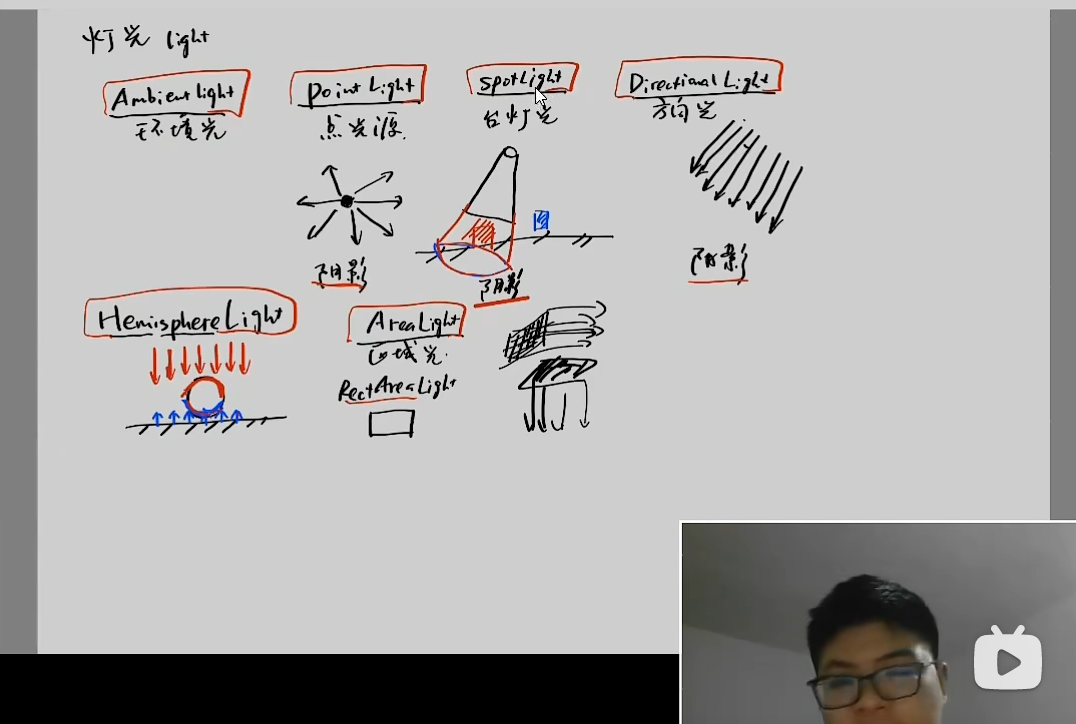 灯光 light
AmbientLight
环境光
Point Light
点光源
SpotLight
台灯光
Directional Light
方向光
阴影
阴影
阴影
HemisphereLight
AreaLight
区域光
RectAreaLight